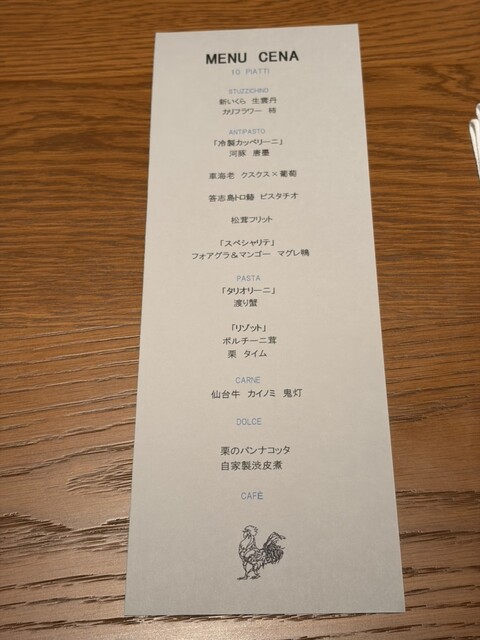 MENU CENA
10 PIATTI
STUZZICHINO
新いくら 生雲丹
カリフラワー 柿
ANTIPASTO
「冷製カッペリーニ」
河豚 唐墨
車海老 クスクス×葡萄
答志島トロ鰆 ピスタチオ
松茸フリット
「スペシャリテ」
フォアグラ&マンゴー マグレ鴨
PASTA
「タリオリーニ」
渡り蟹
「リゾット」
ポルチーニ茸
栗 タイム
CARNE
仙台牛 カイノミ 鬼灯
DOLCE
栗のパンナコッタ
自家製渋皮煮
CAFÈ